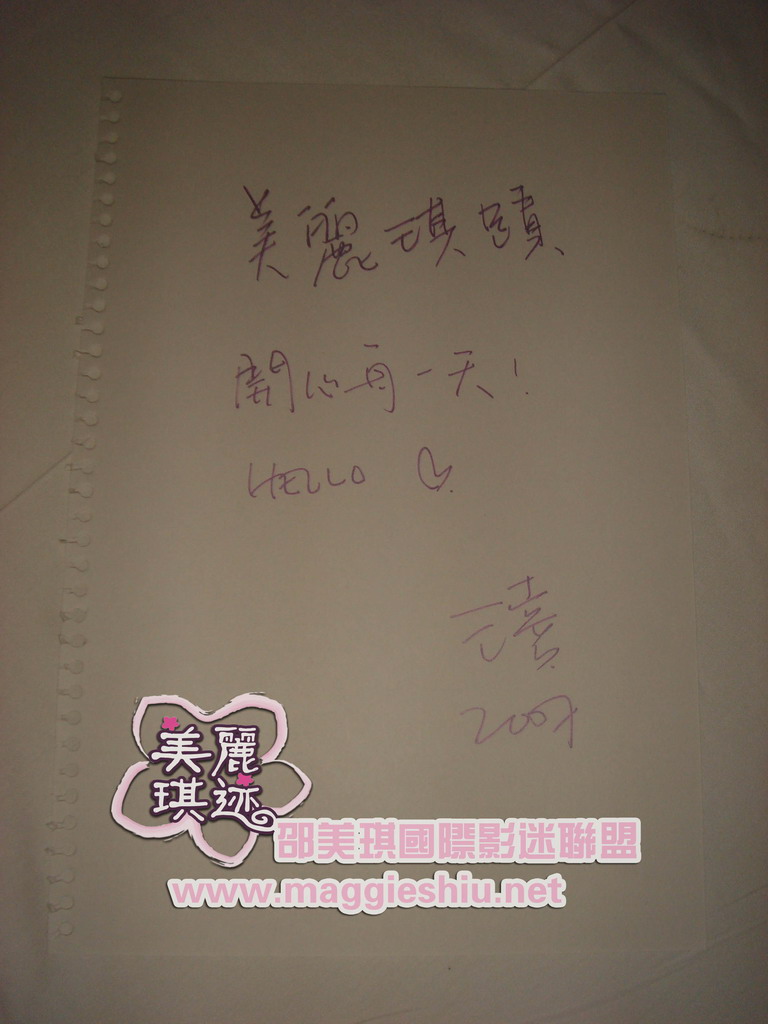 美麗琪蹟
開心每一天!
HELLO
琪
2007
美麗
琪迹
邵美琪國際影迷聯盟
www.maggieshiu.net